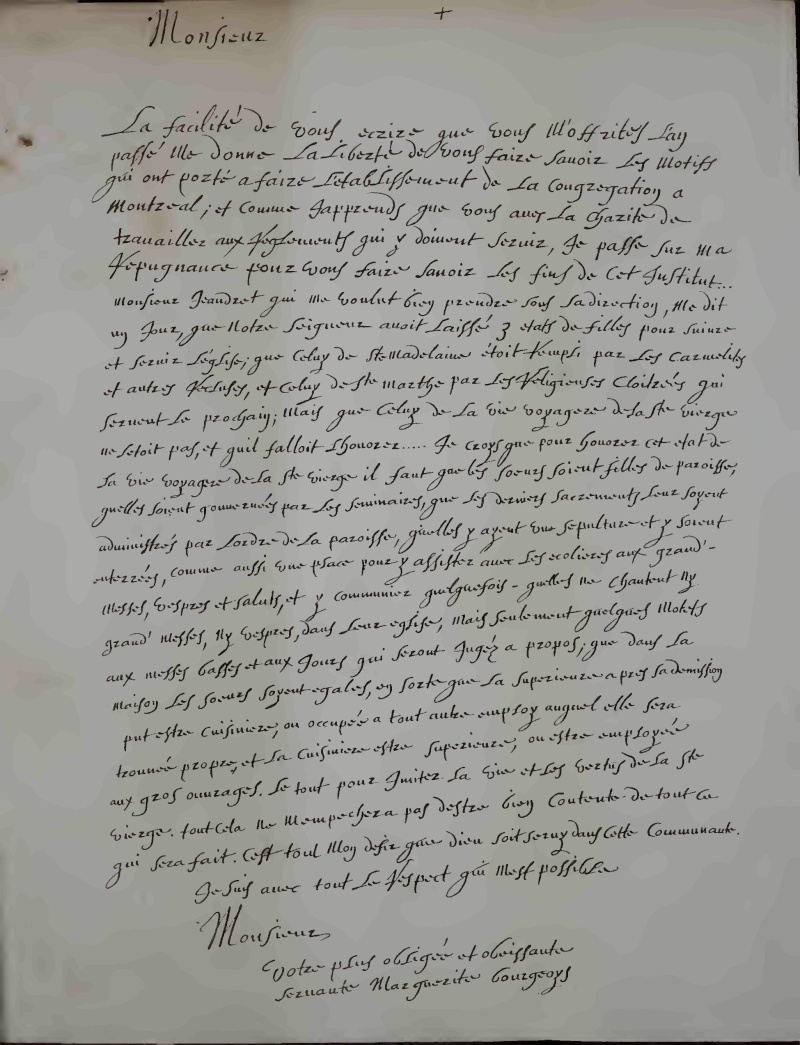 +
Monsieur
La facilité de vous ecrire que vous M'offrites L'an
passé Me donne La Liberté de vous faire savoir Les Motifs
qui ont porté a faire L'etablissement de La Congregation a
Montreal; et Comme J'apprends que vous aves La charité de
travailler aux Reglements qui y doivent servir, Je passe sur Ma
Repugnance pour vous faire savoir Les fins de Cet Institut...
Monsieur Jeandret qui Me voulut bien prendre sous sa direction, Me dit
un Jour, que Notre seigneur avoit Laissé 3 etats de filles pour suivre
et servir L'église; que Celuy de ste Madelaine étoit Rempli par Les Carmelites
et autres Recluses, et Celuy de ste Marthe par Les Religieuses Cloitreés qui
servent Le prochain; Mais que Celuy de La vie voyagere de la ste vierge
ne letoit pas, et quil falloit L'honorer..... Je Croys que pour honorer cet etat de
La vie voyagere de La ste vierge il faut que les soeurs soient filles de paroisse,
quelles soient gouvernées par Les seminaires, que Les derniers sacrements Leur soyent
administrés par Lordre de La paroisse, qu'elles y ayent une sepulture et y soient
enterrées, comme aussi une place pour y assister avec Les ecolieres aux grand'-
Messes, vespres et saluts, et y communier quelquefois - quelles ne Chantent Ny
grand' Messes, Ny vespres, dans Leur eglise, Mais seulement quelques Motets
aux Messes basses et aux Jours qui seront Jugéz a propos; que dans La
Maison Les soeurs soyent egales, en sorte que La superieure apres sa demission
put estre Cuisiniere, ou occupée a tout autre employ auquel elle sera
trouvée propre, et La Cuisiniere estre superieure, ou estre employée
aux gros ouvrages. Le tout pour Jmiter La vie et Les vertus de La ste
vierge. tout Cela Ne M'empechera pas destre bien Contente de tout Ce
qui sera fait. C'est tout Mon desir que dieu soit servy dans Cette Communaute.
Je suis avec tout Le Respect qui M'est possible
Monsieur,
Votre plus obligée et obeissante
servante Marguerite bourgeoys